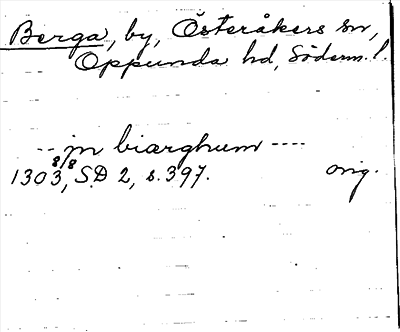 Berga, by, Österåkers sn,
Oppunda hd, Söderm. l.
-- jn biærghum ----
1303 8/8, SD 2, s. 397. orig.